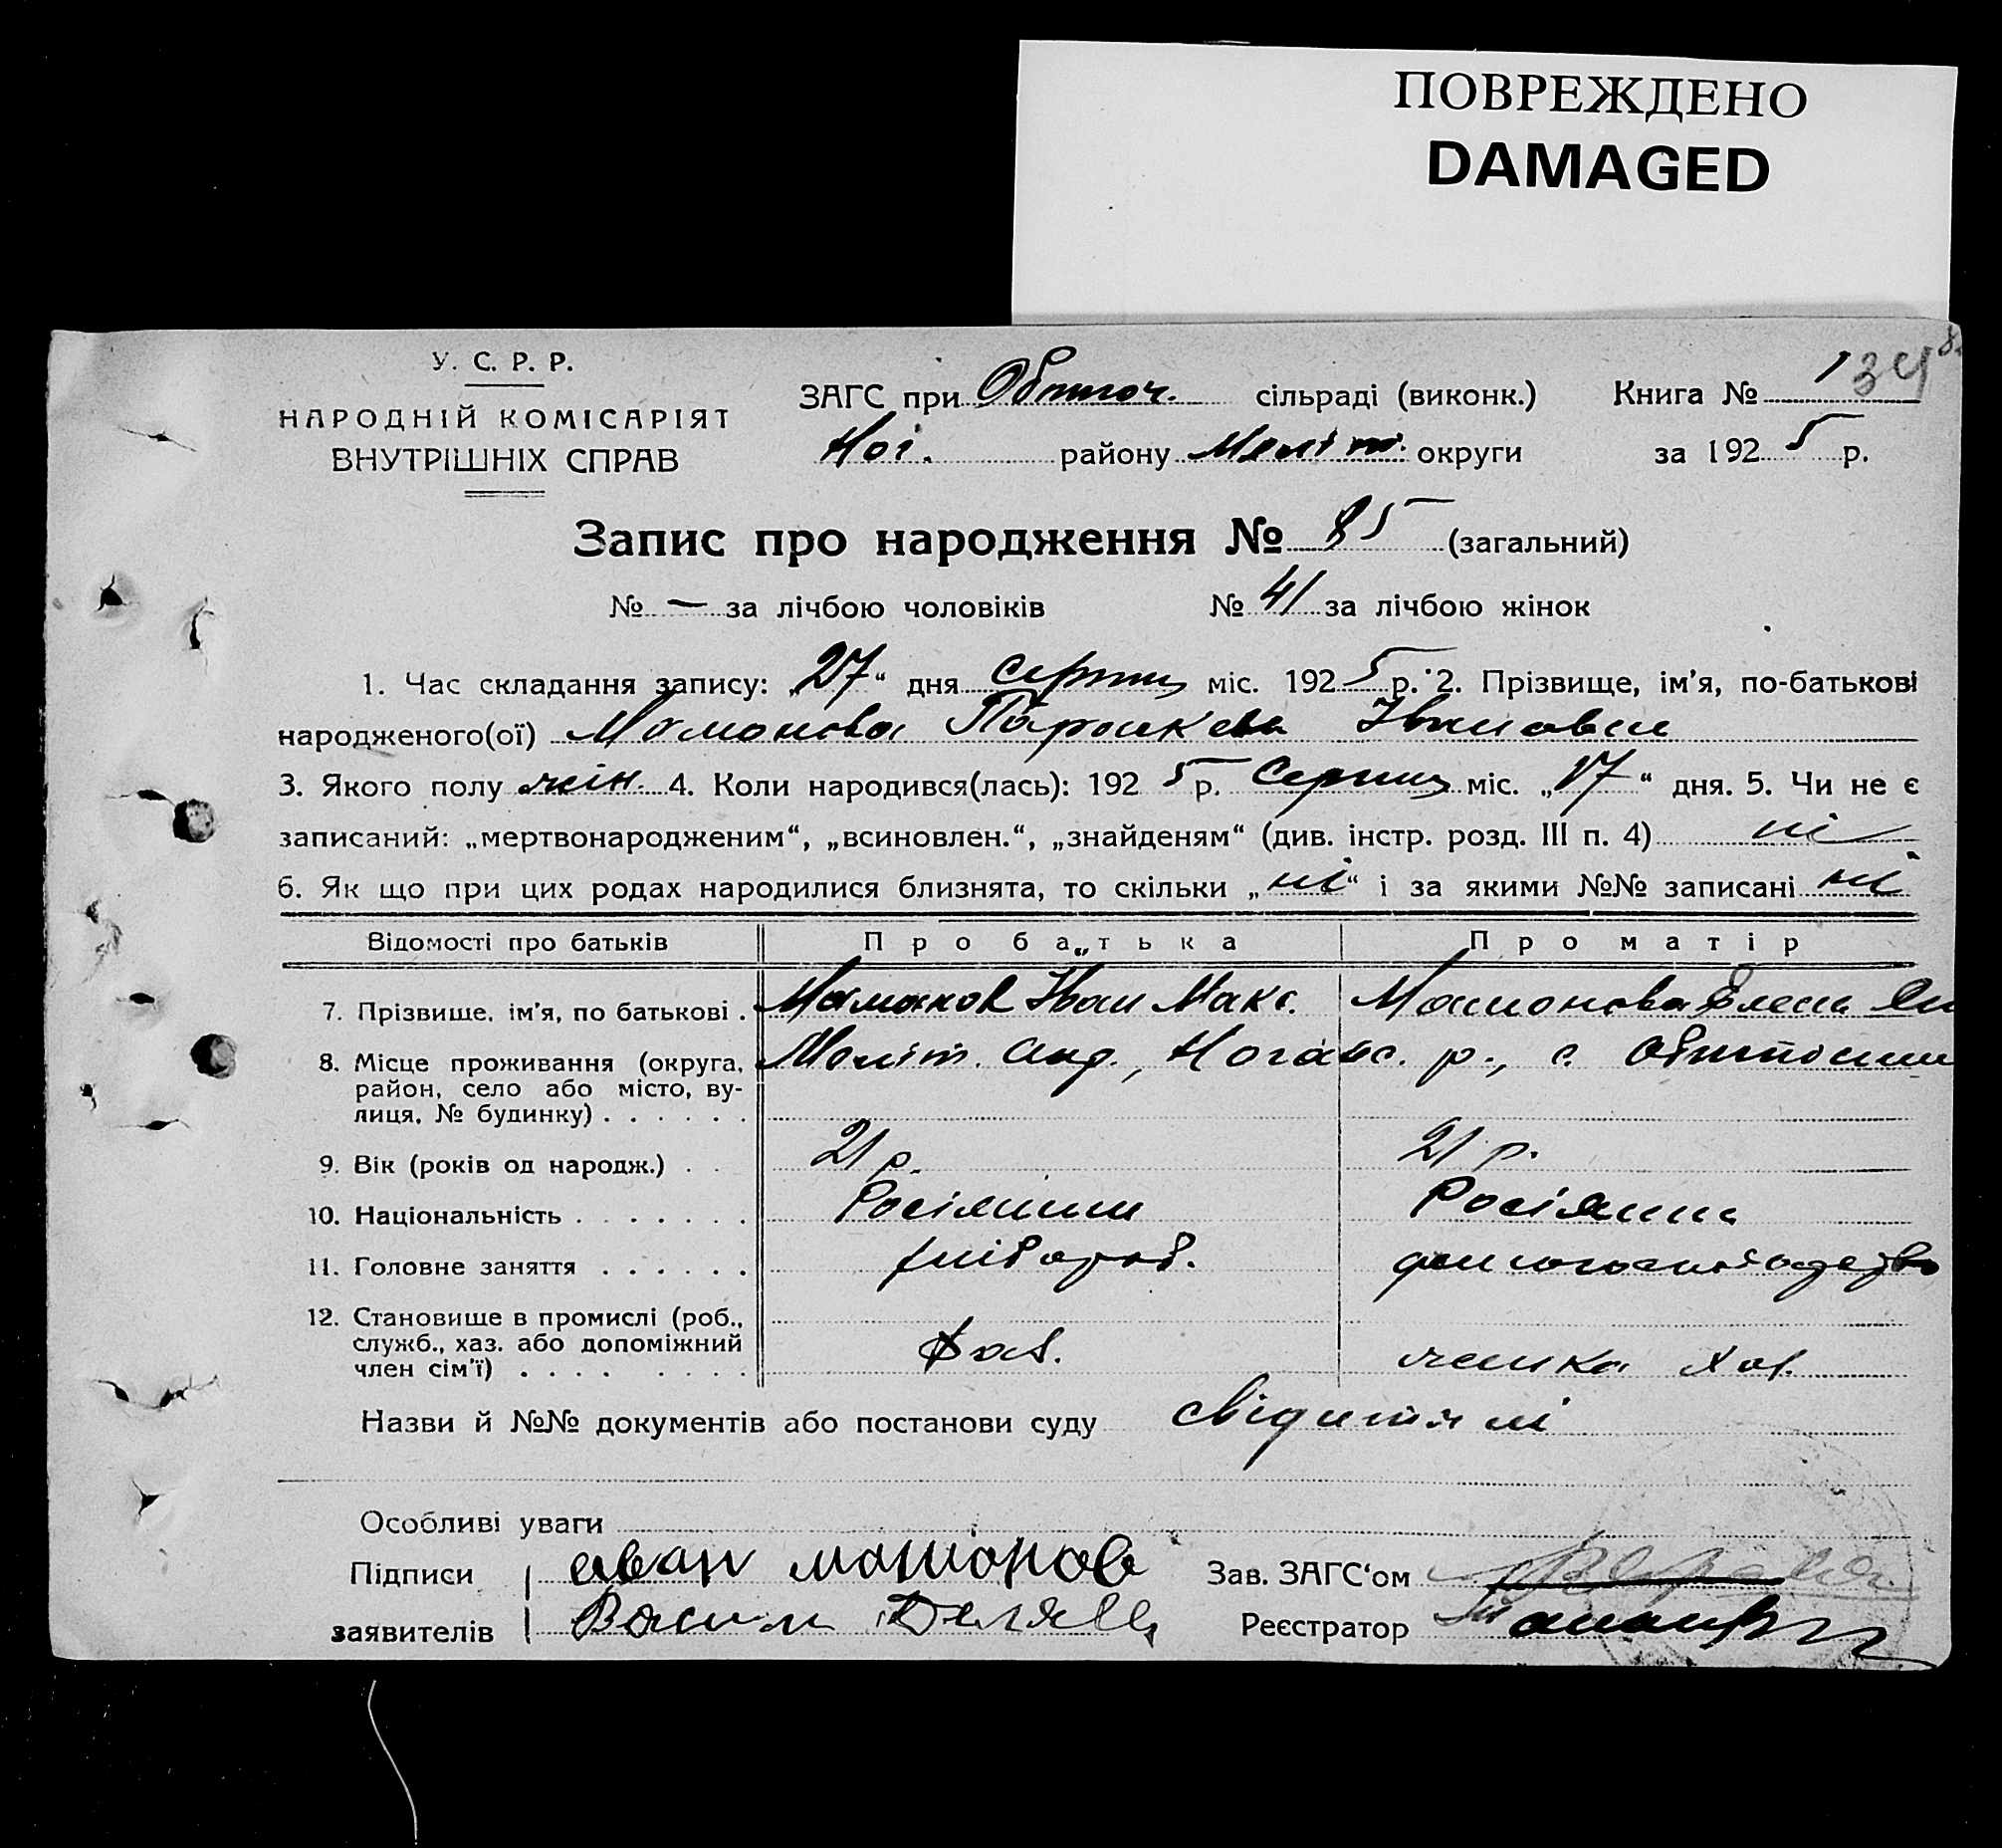 ПОВРЕЖДЕНО
DAMAGED
У. С. Р. Р.
НАРОДНІЙ КОМІСАРІЯТ
ВНУТРІШНІХ СПРАВ
ЗАГС при Обиточ. сільраді (виконк.) Книга №
Ног. району Меліт. округи за 1925 р.
Запис про народження № 85 (загальний)
№ — за лічбою чоловіків № 41 за лічбою жінок
1. Час складання запису: „27“ дня Серпня міс. 1925 р. 2. Прізвище, ім'я, по-батькові
народженого(ої) Мамонова Параскева Івановна
3. Якого полу жін. 4. Коли народився(лась): 1925 р. Серпня міс. „17“ дня. 5. Чи не є
записаний: „мертвонародженим“, „всиновлен.“, „знайденям“ (див. інстр. розд. III п. 4) ні
6. Як що при цих родах народилися близнята, то скільки „ні“ і за якими №№ записані ні
Відомості про батьків Про батька Про матір
7. Прізвище, ім'я, по батькові . Мамонов Іван Макс. Мамонова Елена
8. Місце проживання (округа, Меліт. окр., Ногайс. р., с.
район, село або місто, ву-
лиця, № будинку) . . . . . .
9. Вік (років од народж.) . . 21 р. 21 р.
10. Національність . . . . . . . Росіянин Росіянка
11. Головне заняття . . . . . . хлібороб.
12. Становище в промислі (роб.,
служб., хаз. або допоміжний
член сім'ї) . . . . . . . . Хаз. жінка хаз.
Назви й №№ документів або постанови суду свідителі
Особливі уваги
Підписи иван мамонов Зав. ЗАГС‘ом
заявителів Реєстратор